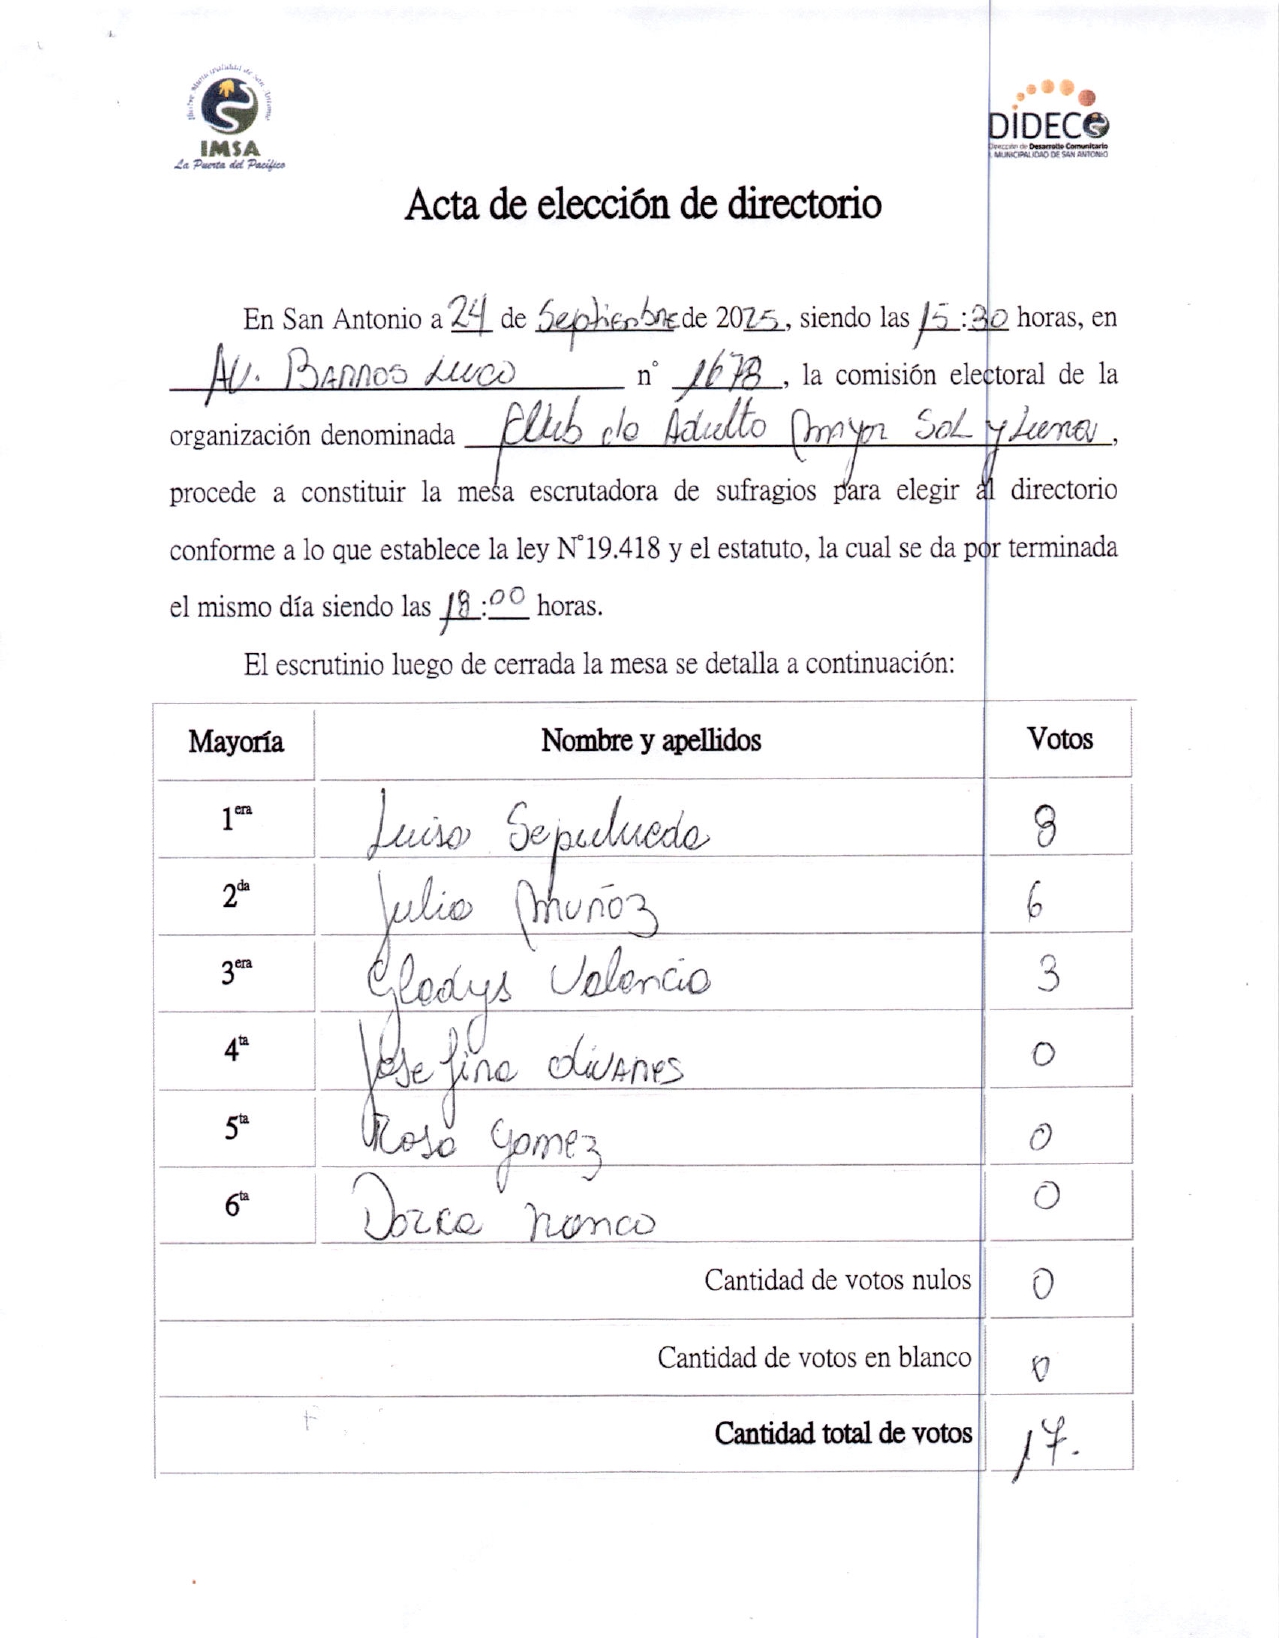 Ilustre Municipalidad de San Antonio
IMSA
La Puerta del Pacífico
DIDECO
Dirección de Desarrollo Comunitario
I. MUNICIPALIDAD DE SAN ANTONIO
Acta de elección de directorio
En San Antonio a 24 de Septiembre de 2025, siendo las 15:30 horas, en
AV. BARROS LUCO n° 1678, la comisión electoral de la
organización denominada Club de Adulto Mayor SOL y Luna,
procede a constituir la mesa escrutadora de sufragios para elegir al directorio
conforme a lo que establece la ley N°19.418 y el estatuto, la cual se da por terminada
el mismo día siendo las 18:00 horas.
El escrutinio luego de cerrada la mesa se detalla a continuación:
Mayoría Nombre y apellidos Votos
1era Luisa Sepulveda 8
2da Julia Muñoz 6
3era Gladys Valencia 3
4ta Josefina OLIVARES 0
5ta Rosa Gomez 0
6ta Dorca Nanco 0
Cantidad de votos nulos 0
Cantidad de votos en blanco 0
Cantidad total de votos 17.